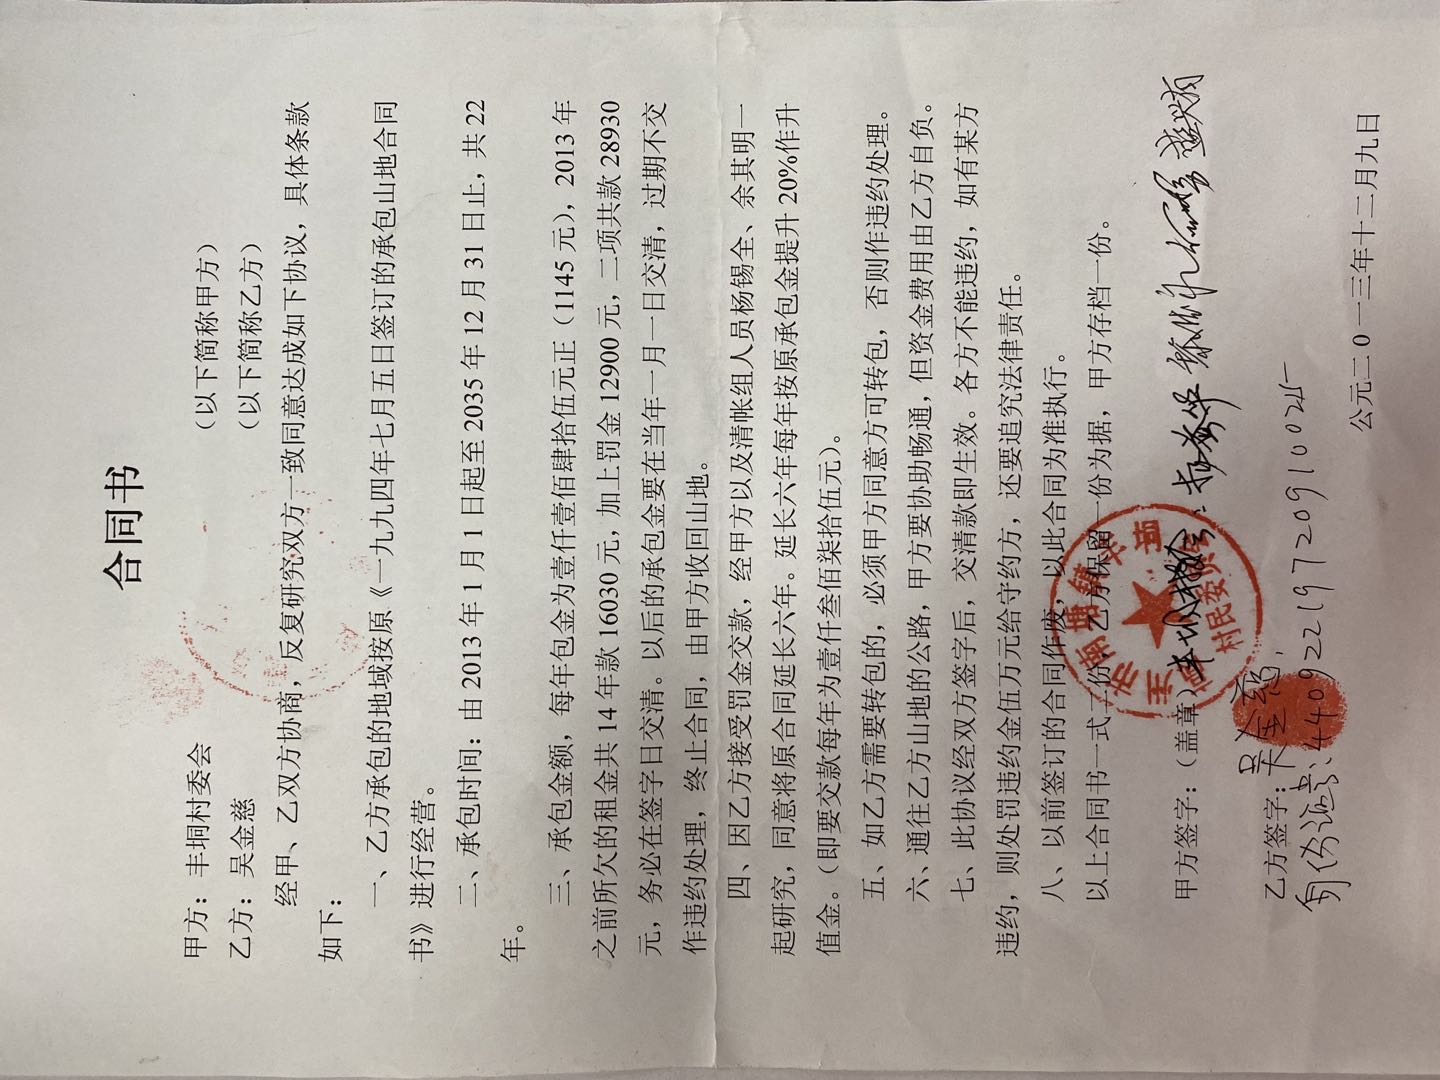 合同书
甲方：丰垌村委会 （以下简称甲方）
乙方：吴金慈 （以下简称乙方）
经甲、乙双方协商，反复研究双方一致同意达成如下协议，具体条款
如下：
一、乙方承包的地域按原《一九九四年七月五日签订的承包山地合同
书》进行经营。
二、承包时间：由 2013 年 1 月 1 日起至 2035 年 12 月 31 日止，共 22
年。
三、承包金额，每年包金为壹仟壹佰肆拾伍元正（1145 元），2013 年
之前所欠的租金共 14 年款 16030 元，加上罚金 12900 元，二项共款 28930
元，务必在签字日交清。以后的承包金要在当年一月一日交清，过期不交
作违约处理，终止合同，由甲方收回山地。
四、因乙方接受罚金交款，经甲方以及清帐组人员杨锡全、余其明一
起研究，同意将原合同延长六年。延长六年每年按原承包金提升 20%作升
值金。（即要交款每年为壹仟叁佰柒拾伍元）。
五、如乙方需要转包的，必须甲方同意方可转包，否则作违约处理。
六、通往乙方山地的公路，甲方要协助畅通，但资金费用由乙方自负。
七、此协议经双方签字后，交清款即生效。各方不能违约，如有某方
违约，则处罚违约金伍万元给守约方，还要追究法律责任。
八、以前签订的合同作废，以此合同为准执行。
以上合同书一式二份，乙方保留一份为据，甲方存档一份。
甲方签字：（盖章）
村民委员会
乙方签字：吴金慈
身份证：440922197209100025
公元二0一三年十二月九日